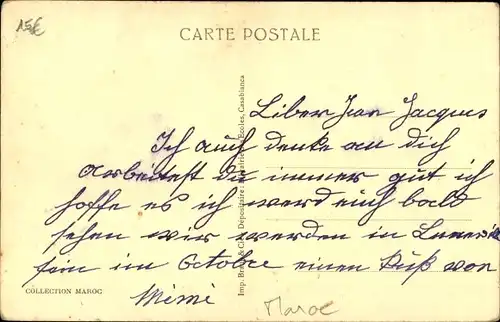 15€
CARTE POSTALE
Liber Jean Jacques
Ich auch denke an dich
Arbeitest du immer gut ich
hoffe es ich werd euch bald
sehen wir werden in
sein im Octobre einen Kuß von
Mémé
Imp. & Cie, Dépositaire: Ecoles, Casablanca
COLLECTION MAROC
Maroc